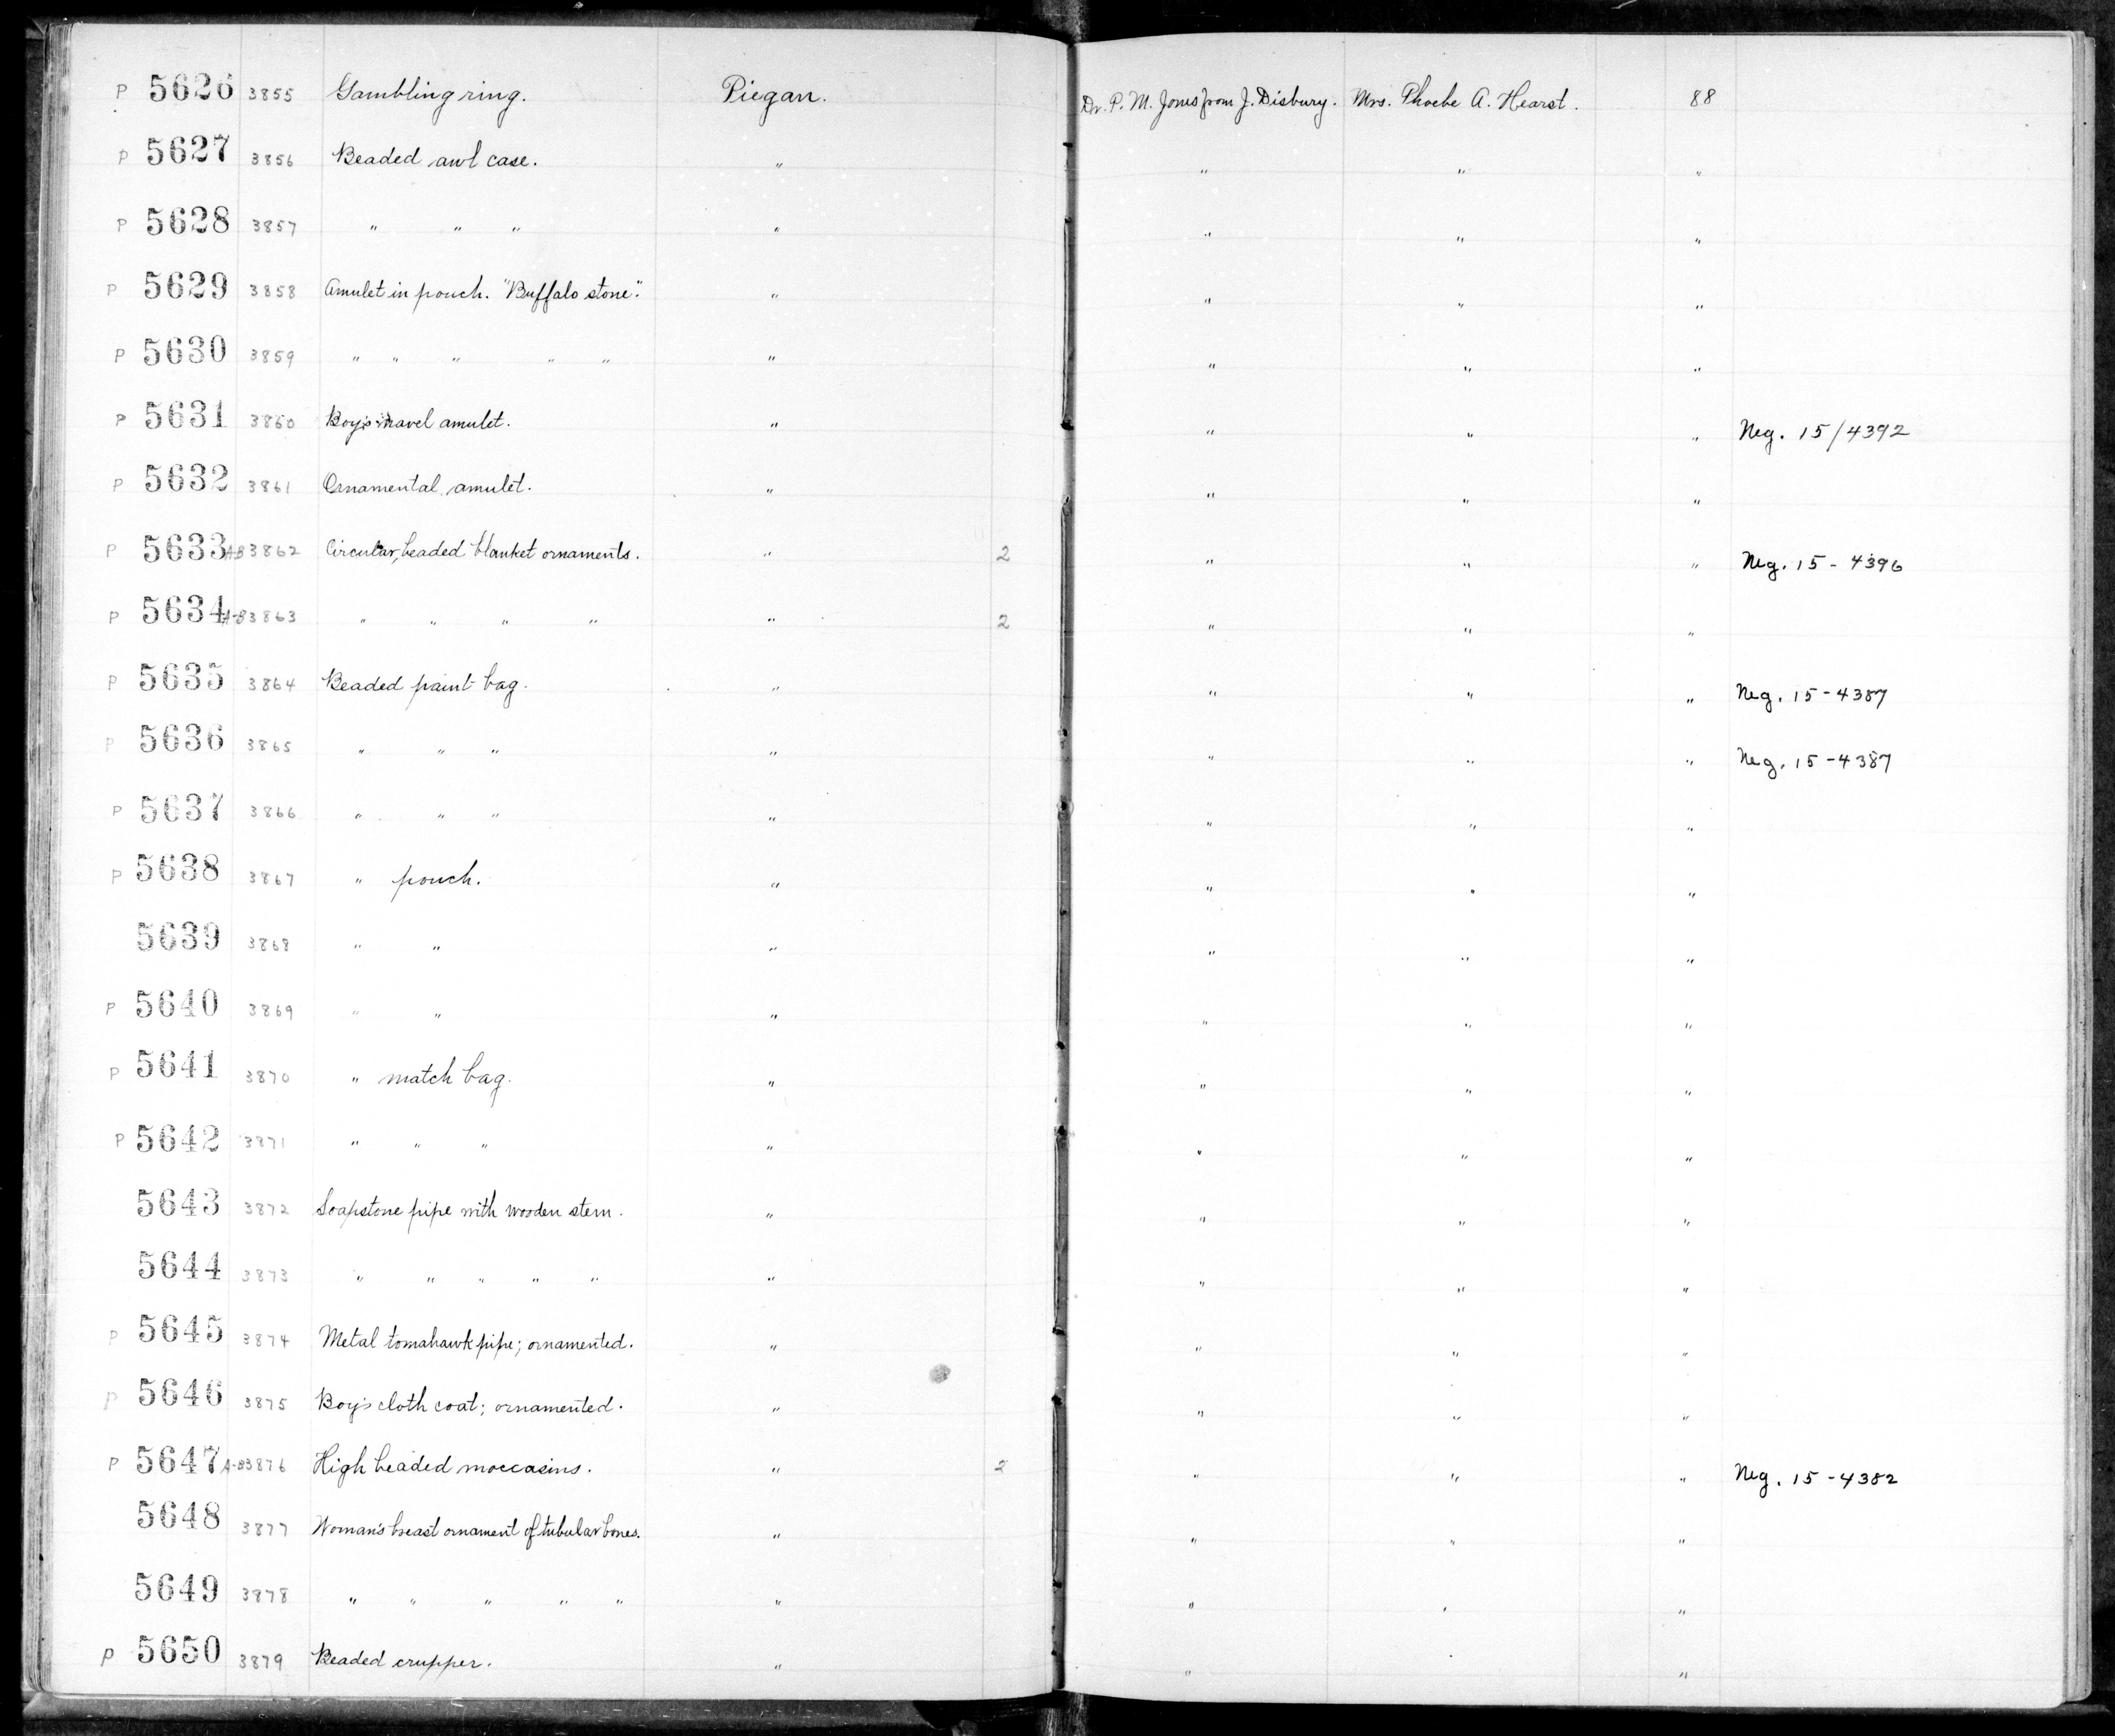 P 5626 3855 Gambling ring. Piegan. Dr. P. M. Jones from J. Disbury. Mrs. Phoebe A. Hearst. 88
P 5627 3856 Beaded awl case. " " " "
P 5628 3857 " " " " " " "
P 5629 3858 Amulet in pouch. "Buffalo stone". " " " "
P 5630 3859 " " " " " " " " "
P 5631 3860 Boy's navel amulet. " " " " Neg. 15/4392
P 5632 3861 Ornamental amulet. " " " "
P 5633 A-B 3862 Circular, beaded blanket ornaments. " 2 " " " Neg. 15-4396
P 5634 A-B 3863 " " " " " 2 " " "
P 5635 3864 Beaded paint bag. " " " " Neg. 15-4387
P 5636 3865 " " " " " " " Neg. 15-4387
P 5637 3866 " " " " " " "
P 5638 3867 " pouch. " " " "
5639 3868 " " " " " "
P 5640 3869 " " " " " "
P 5641 3870 " match bag. " " " "
P 5642 3871 " " " " " " "
5643 3872 Soapstone pipe with wooden stem. " " " "
5644 3873 " " " " " " " " "
P 5645 3874 Metal tomahawk pipe; ornamented. " " " "
P 5646 3875 Boy's cloth coat; ornamented. " " " "
P 5647 A-B 3876 High beaded moccasins. " 2 " " " Neg. 15-4382
5648 3877 Woman's breast ornament of tubular bones. " " " "
5649 3878 " " " " " " " " "
P 5650 3879 Beaded crupper. " " " "